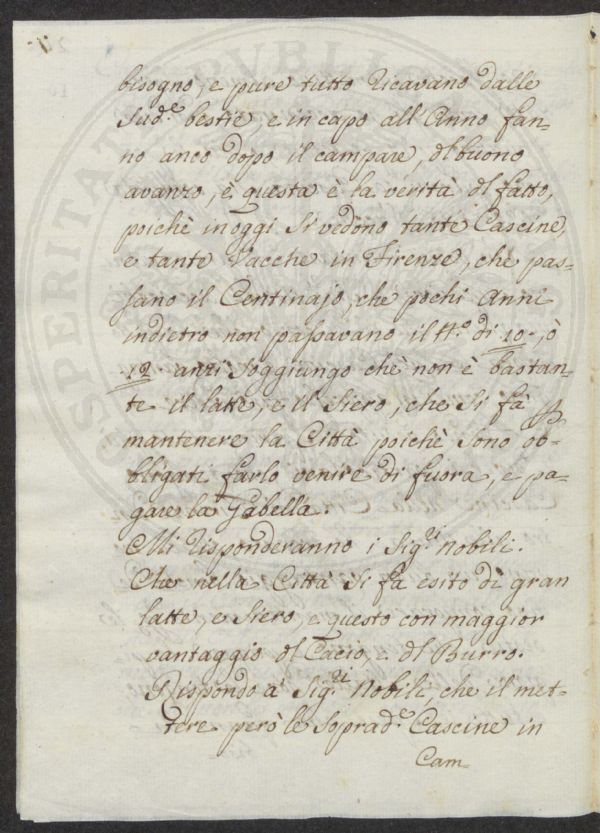 bisogno, e pure tutto ricavano dalle
Sud.e bestie e in capo all'Anno fan=
no anco dopo il campare, dl buono
avanzo, e questa è la verità dl fatto,
poichè in oggi si vedono tante Cascine,
e tante Vacche in Firenze, che pas=
sano il Centinajo, che pochi Anni
indietro non passavano il N.o di 10. ò
12. anzi soggiungo che non è bastan=
te il latte, e il Siero, che si fà
mantenere la Città poichè sono ob=
bligati farlo venire di fuora, e pa=
gare la Gabella.
Mi risponderanno i Sig.ri Nobili.
Che nella Città si fà esito di gran
latte, e Siero, e questo con maggior
vantaggio dl Cacio, e dl Burro.
Rispondo à Sig.ri Nobili, che il met=
tere però le soprad.e Cascine in
Cam=
PERITAT PVBLI